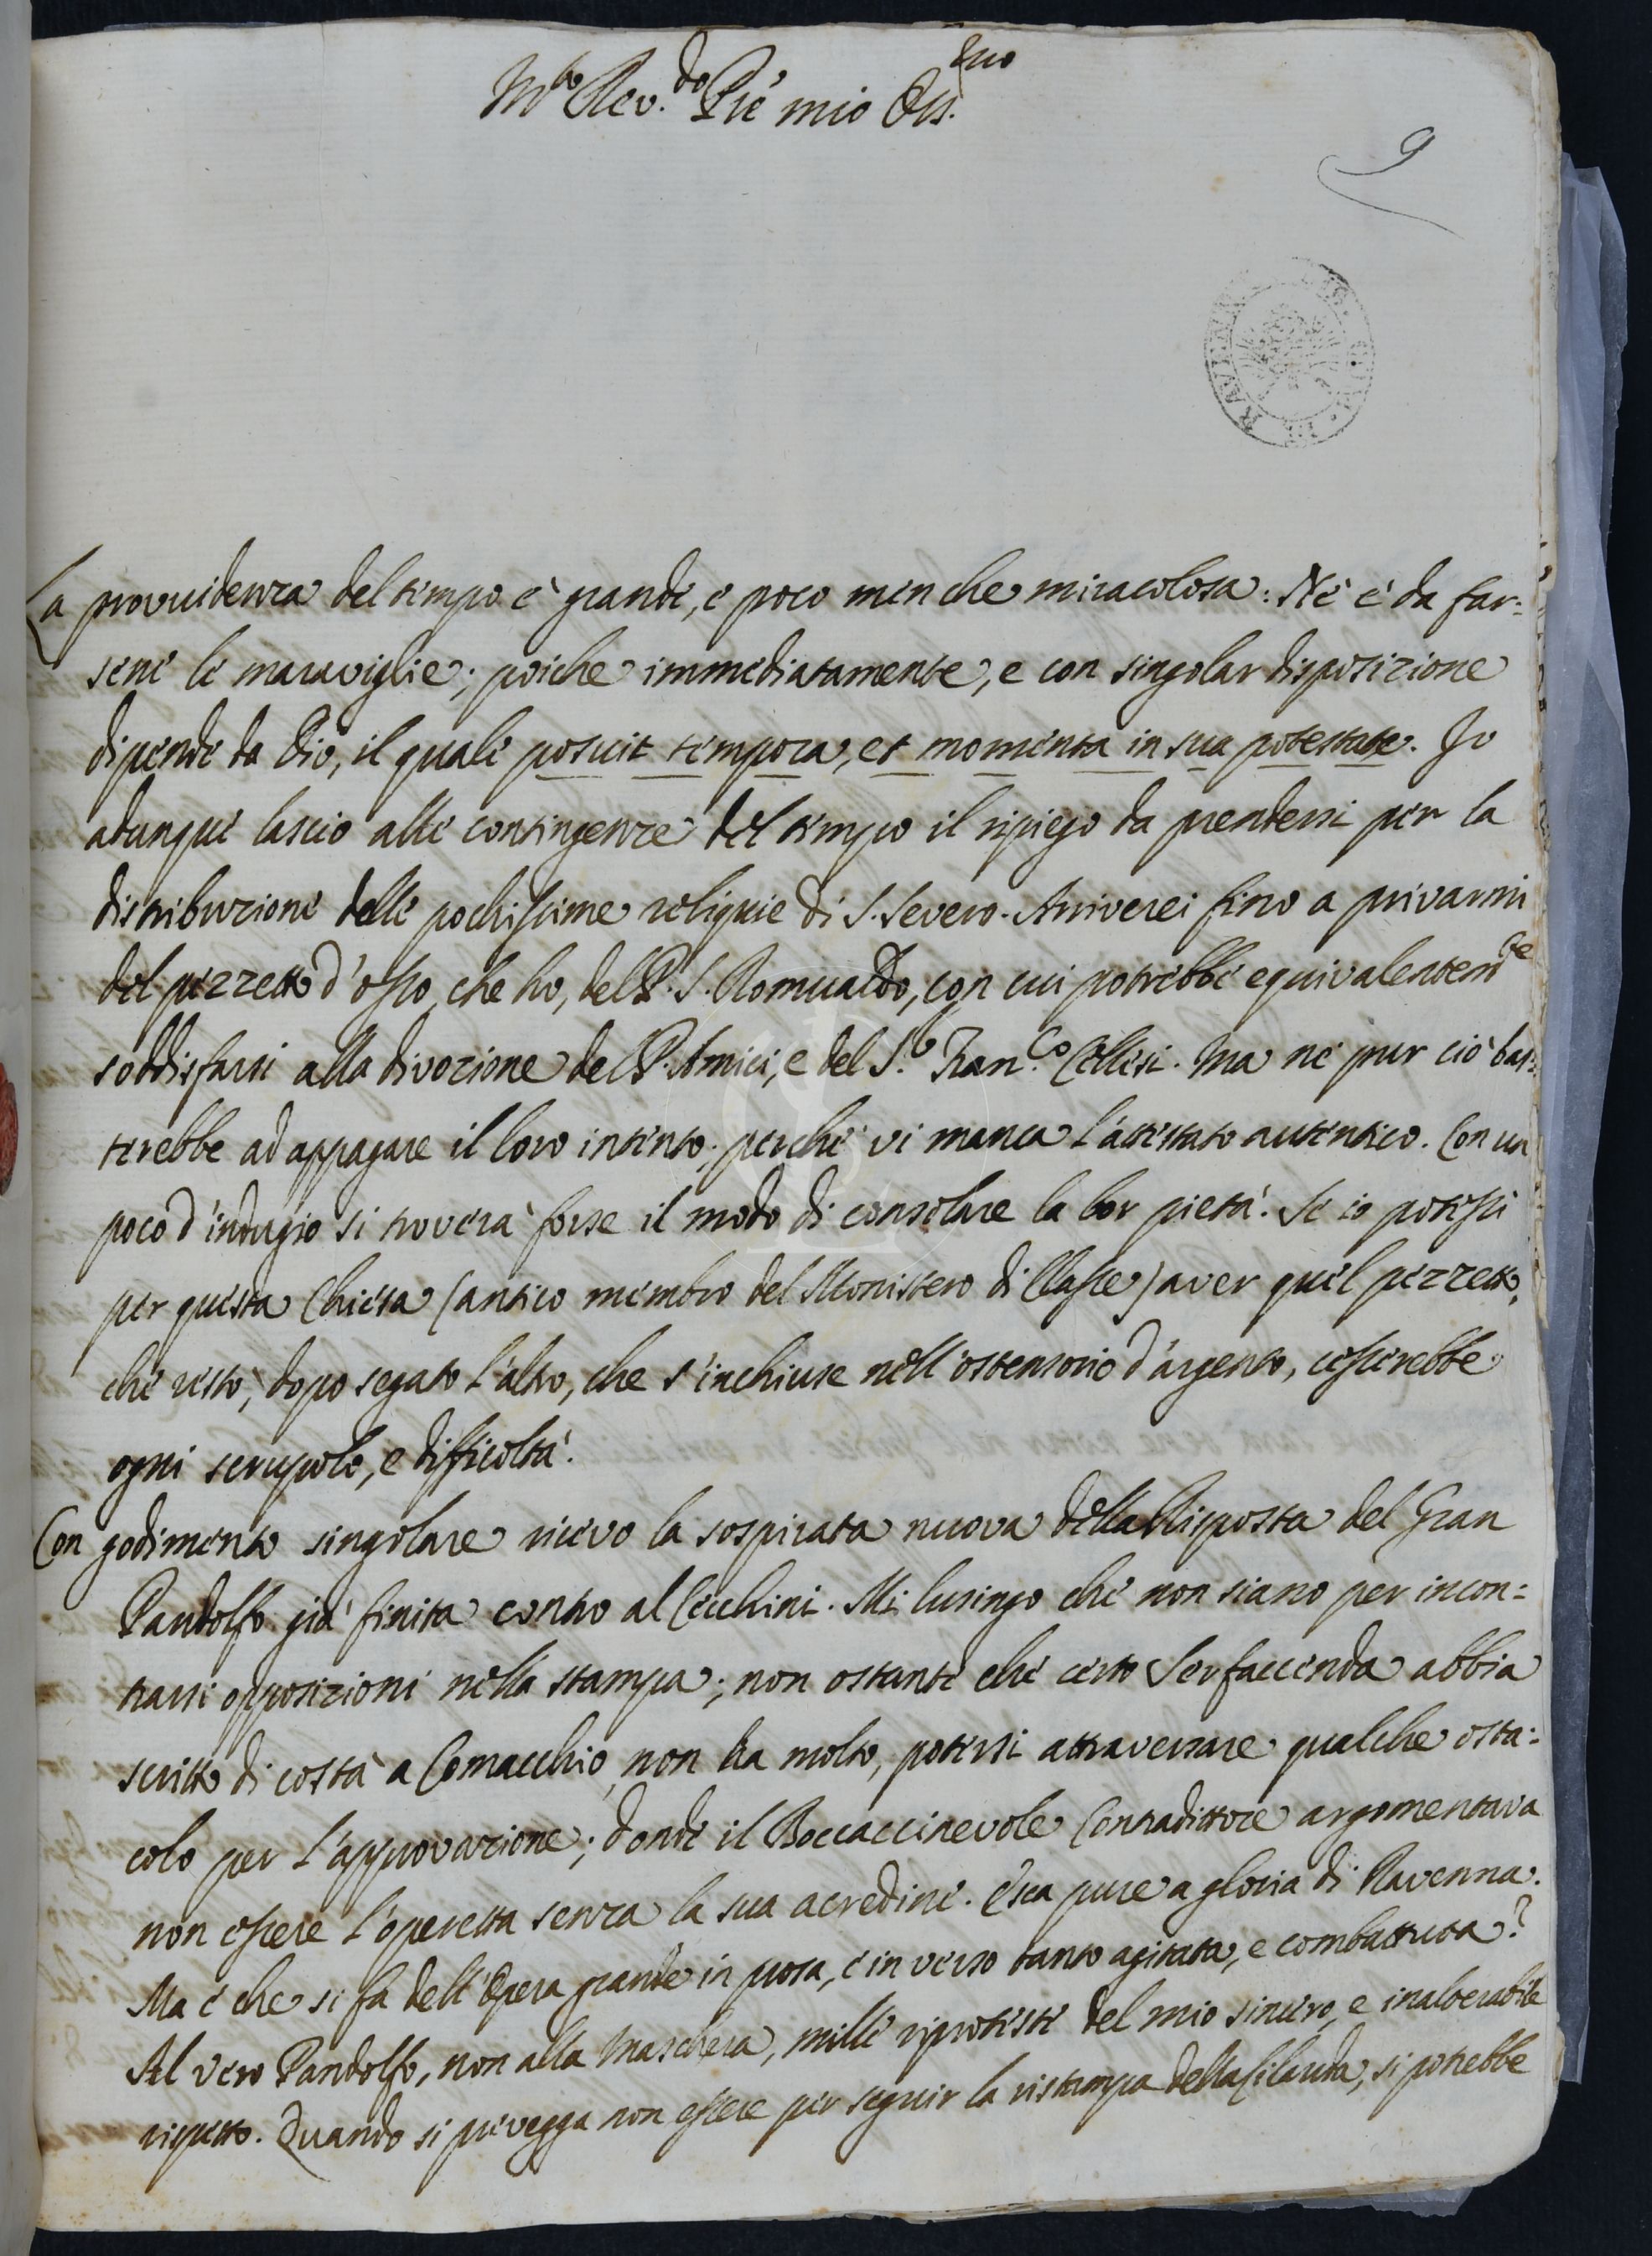 M.to Rev.do P.re mio Oss.mo
9
La provvidenza del tempo è grande, e poco men che miracolosa: Nè è da far=
sene le maraviglie; poiche immediatamente, e con singolar disposizione
dipende da Dio, il quale posuit tempora, et momenta in sua potestate. Io
adunque lascio alle contingenze del tempo il ripiego da prendersi per la
distribuzione delle pochissime reliquie di S. Severo. Arriverei fino a privarmi
del pezzetto d'osso, che ho, del P. S. Romualdo, con cui potrebbe equivalentem.te
soddisfarsi alla divozione del P. Amici, e del S.r Fran.co Collesi. Ma nè pur ciò bas=
terebbe ad appagare il loro intento; perche vi manca l'attestato autentico. Con un
poco d'indugio si troverà forse il modo di consolare la lor pietà. Se io potessi
per questa Chiesa (antico membro del Monistero di Classe) aver quel pezzetto,
che restò, dopo segato l'altro, che s'inchiuse nell'ostensorio d'argento, cesserebbe
ogni scrupolo, e difficoltà.
Con godimento singolare ricevo la sospirata nuova della Risposta del Gran
Pandolfo già finita contro al Cecchini. Mi lusingo che non siano per incon=
trarsi opposizioni nella stampa; non ostante che certo Serfaccenda abbia
scritto di costà a Comacchio, non ha molto, potersi attraversare qualche osta=
colo per l'approvazione; donde il Boccaccinevole Contradittore argomentava
non essere l'operetta senza la sua acredine. Esca pure a gloria di Ravenna.
Ma e che si fa dell'Opera grande in prosa, e in verso tanto agitata, e combattuta?
Al vero Pandolfo, non alla Maschera, mille riproteste del mio sincero, e inalterabile
rispetto. Quando si prevegga non essere per seguir la ristampa della Cilanda, si potrebbe